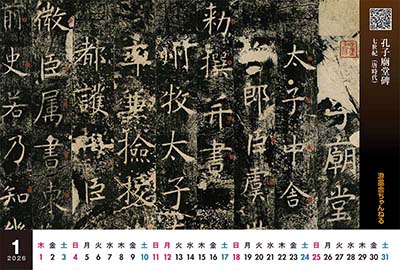 孔子廟堂碑
七世紀(唐時代)
子廟堂
太子中舍
郎臣虞
勅撰并書
州牧太子
率兼檢
都護臣
微臣属書東
前史若乃知幾
1
2026
木 金 土 日 月 火 水 木 金 土 日 月 火 水 木 金 土 日 月 火 水 木 金 土 日 月 火 水 木 金 土
1 2 3 4 5 6 7 8 9 10 11 12 13 14 15 16 17 18 19 20 21 22 23 24 25 26 27 28 29 30 31